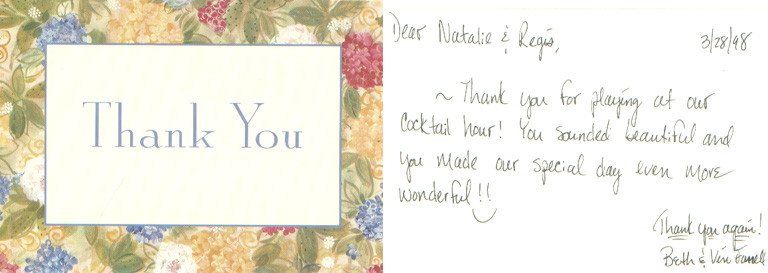 Thank You
Dear Natalie & Regis,
3/28/98
~ Thank you for playing at our
cocktail hour! You sounded beautiful and
you made our special day even more
wonderful!!
Thank you again!
Beth & Vin Farrell